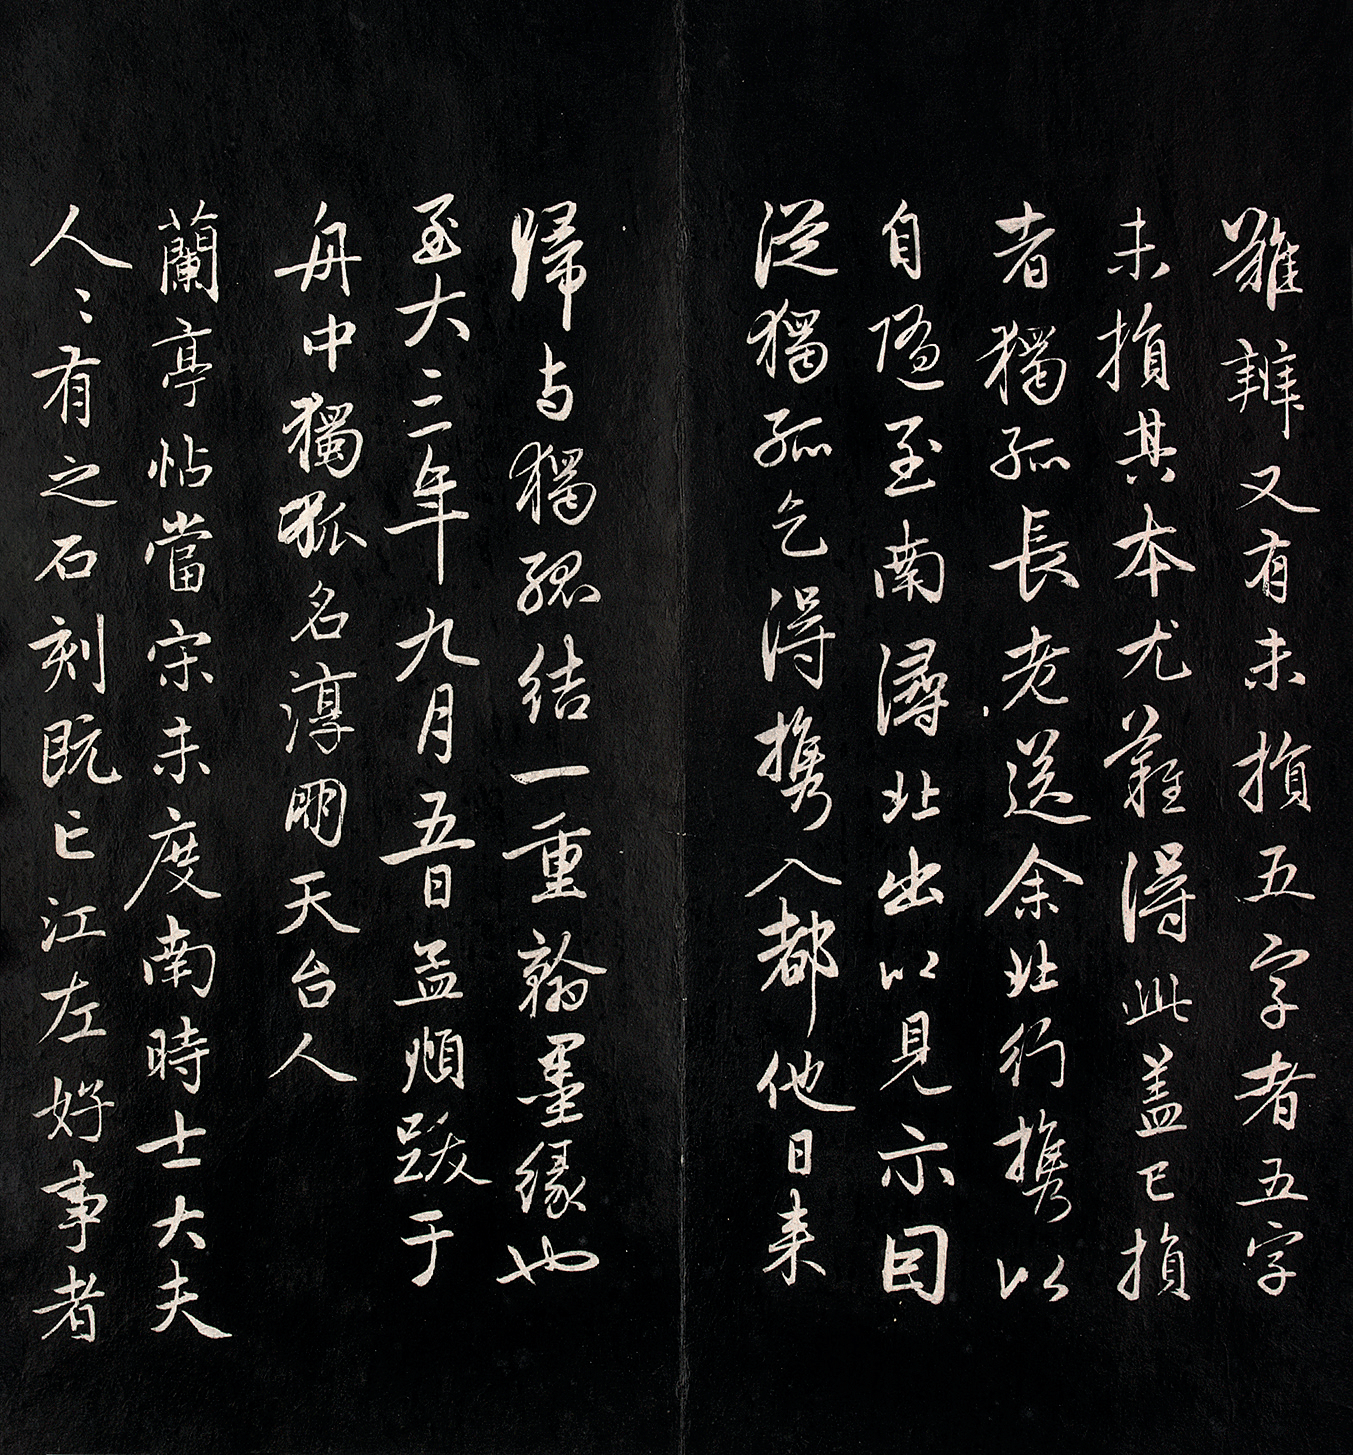 難辨又有未損五字者五字
未損其本尤難得此蓋已損
者獨孤長老送余北行携以
自隨至南潯北出以見示因
從獨孤乞得携入都他日来
歸与獨孤結一重翰墨緣也
至大三年九月五日孟頫跋于
舟中獨孤名淳朋天台人
蘭亭帖當宋未度南時士大夫
人〻有之石刻既亡江左好事者